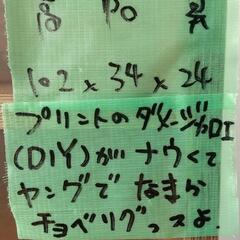 102×34×24
プリントのダメージがDI
(DIY)がナウくて
ヤングでなまら
チョベリグっスよ.